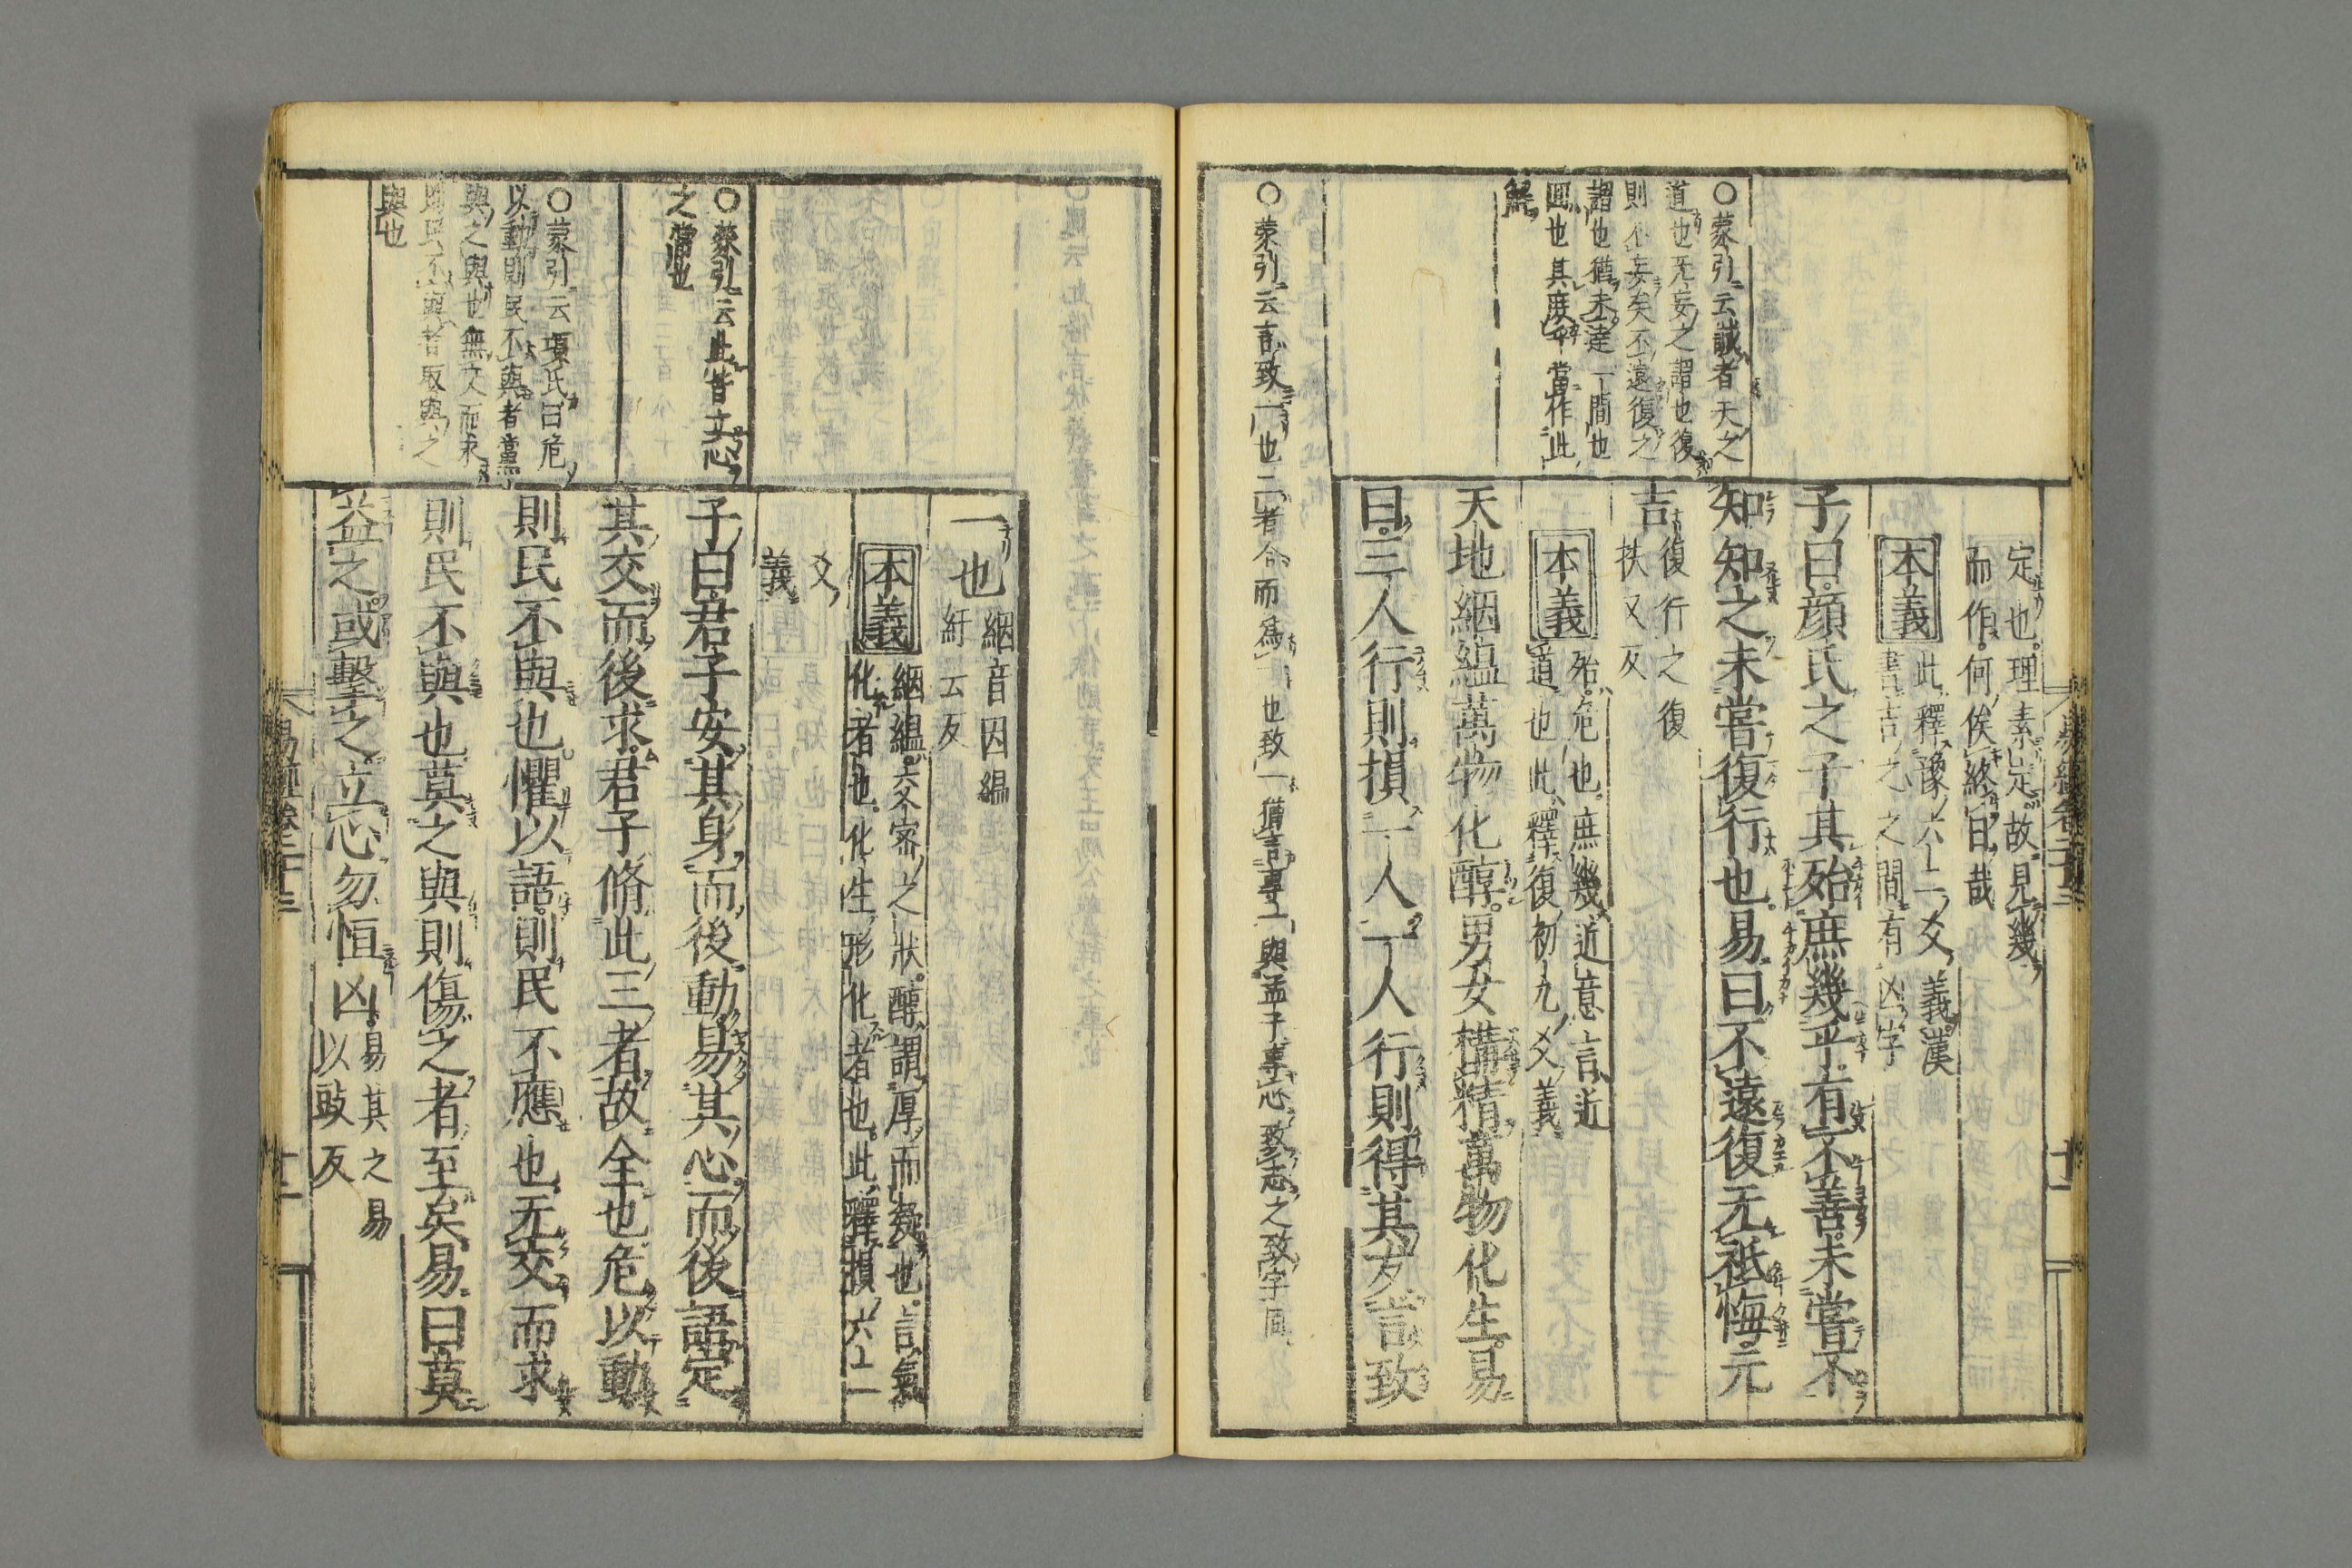 定也。理素定。故見幾
而作。何俟終日哉
本義
此釋豫六二爻義。漢
書吉之之間有凶字
子曰。顔氏之子其殆庶幾乎。有不善。未嘗不
知。知之未嘗復行也。易曰。不遠復。无祗悔。元
吉
復行之復
扶又反
本義
殆。危也。庶幾。近意。言近
道也。此釋復初九爻義
天地絪緼。萬物化醇。男女構精。萬物化生。易
曰。三人行則損一人。一人行則得其友。言致
○蒙引云誠者天之
道也无妄之謂也復
則不妄矣不遠復之
謂也猶未達一間也
回也其庶乎當作此
解
○蒙引云言致一也二者合而為一也致一猶言專一與孟子專心致志之致字同
一也
絪音因緼
紆云反
本義
絪緼。交密之狀。醇。謂厚而凝也。言氣
化者也。化生。形化者也。此釋損六三
爻
義
子曰。君子安其身而後動。易其心而後語。定
其交而後求。君子脩此三者。故全也。危以動。
則民不與也。懼以語。則民不應也。无交而求。
則民不與也。莫之與。則傷之者至矣。易曰。莫
益之。或擊之。立心勿恒。凶。
易其之易
以豉反
○蒙引云此皆立心
之常也
○蒙引云項氏曰危
以動則民不與者黨
與之與也無交而求
則民不與者取與之
與也
易經卷二十三
十一